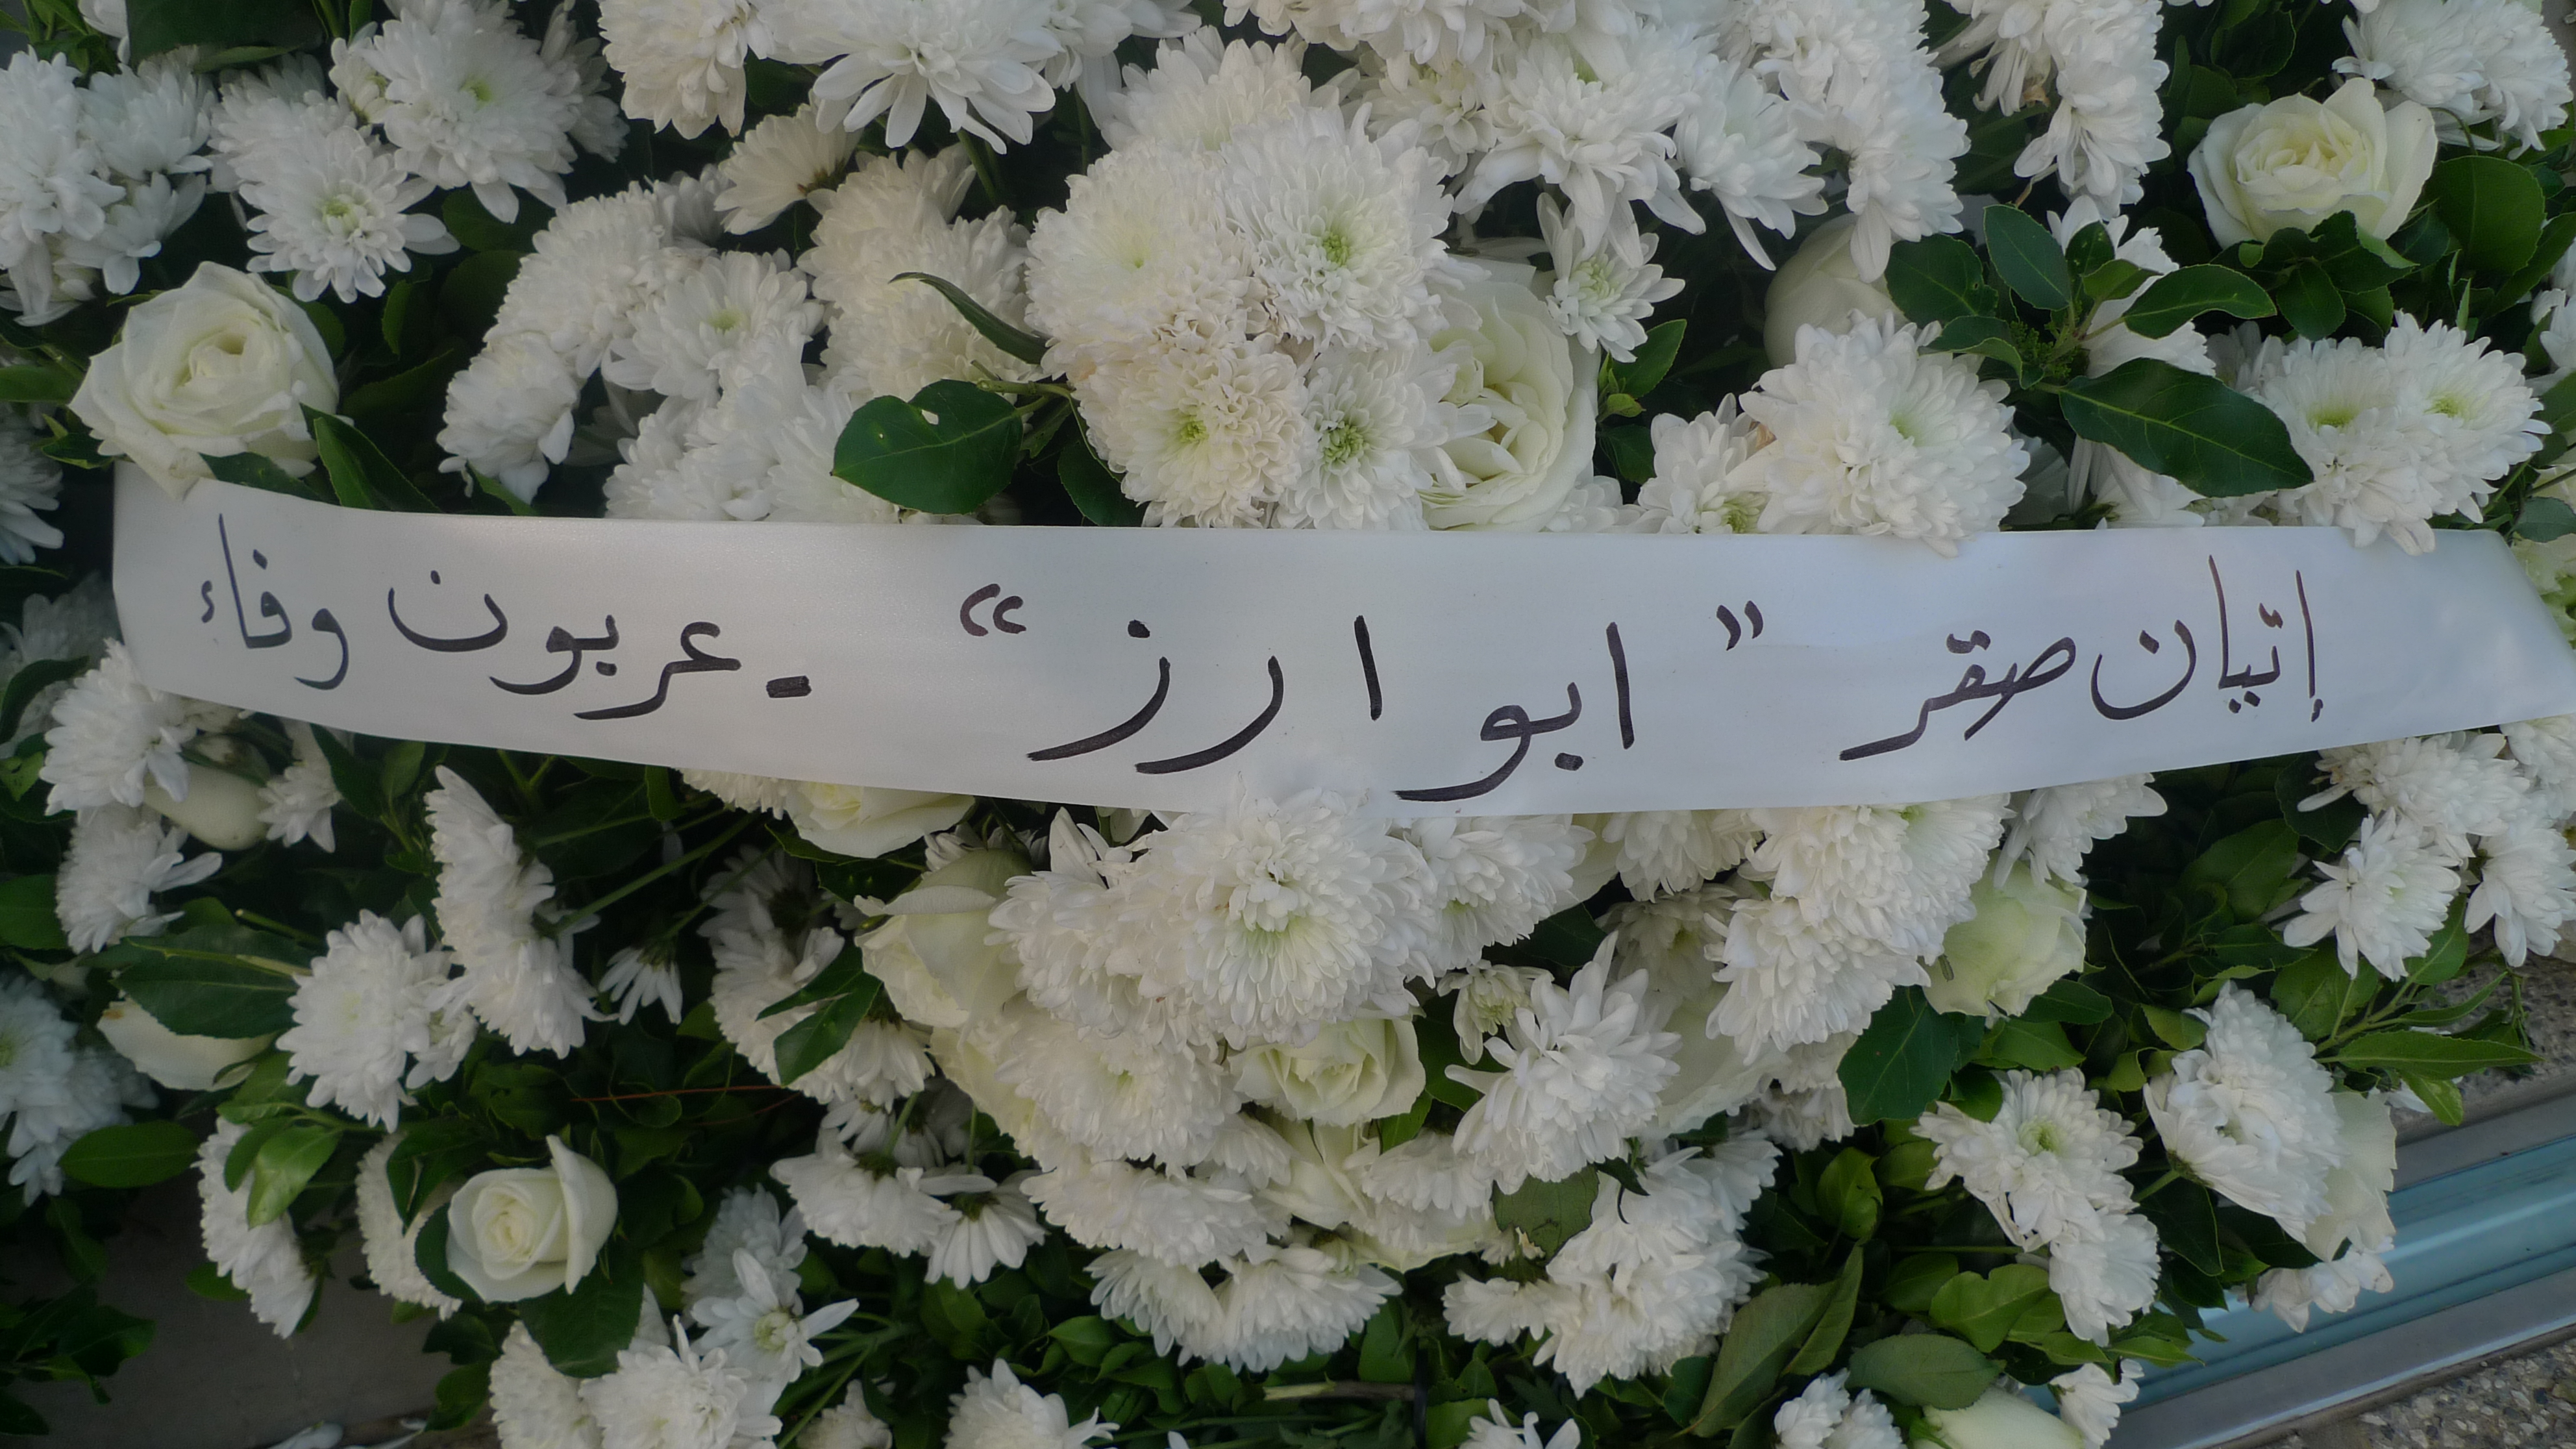 إتيان صقر " ابو ارز " - عربون وفاء